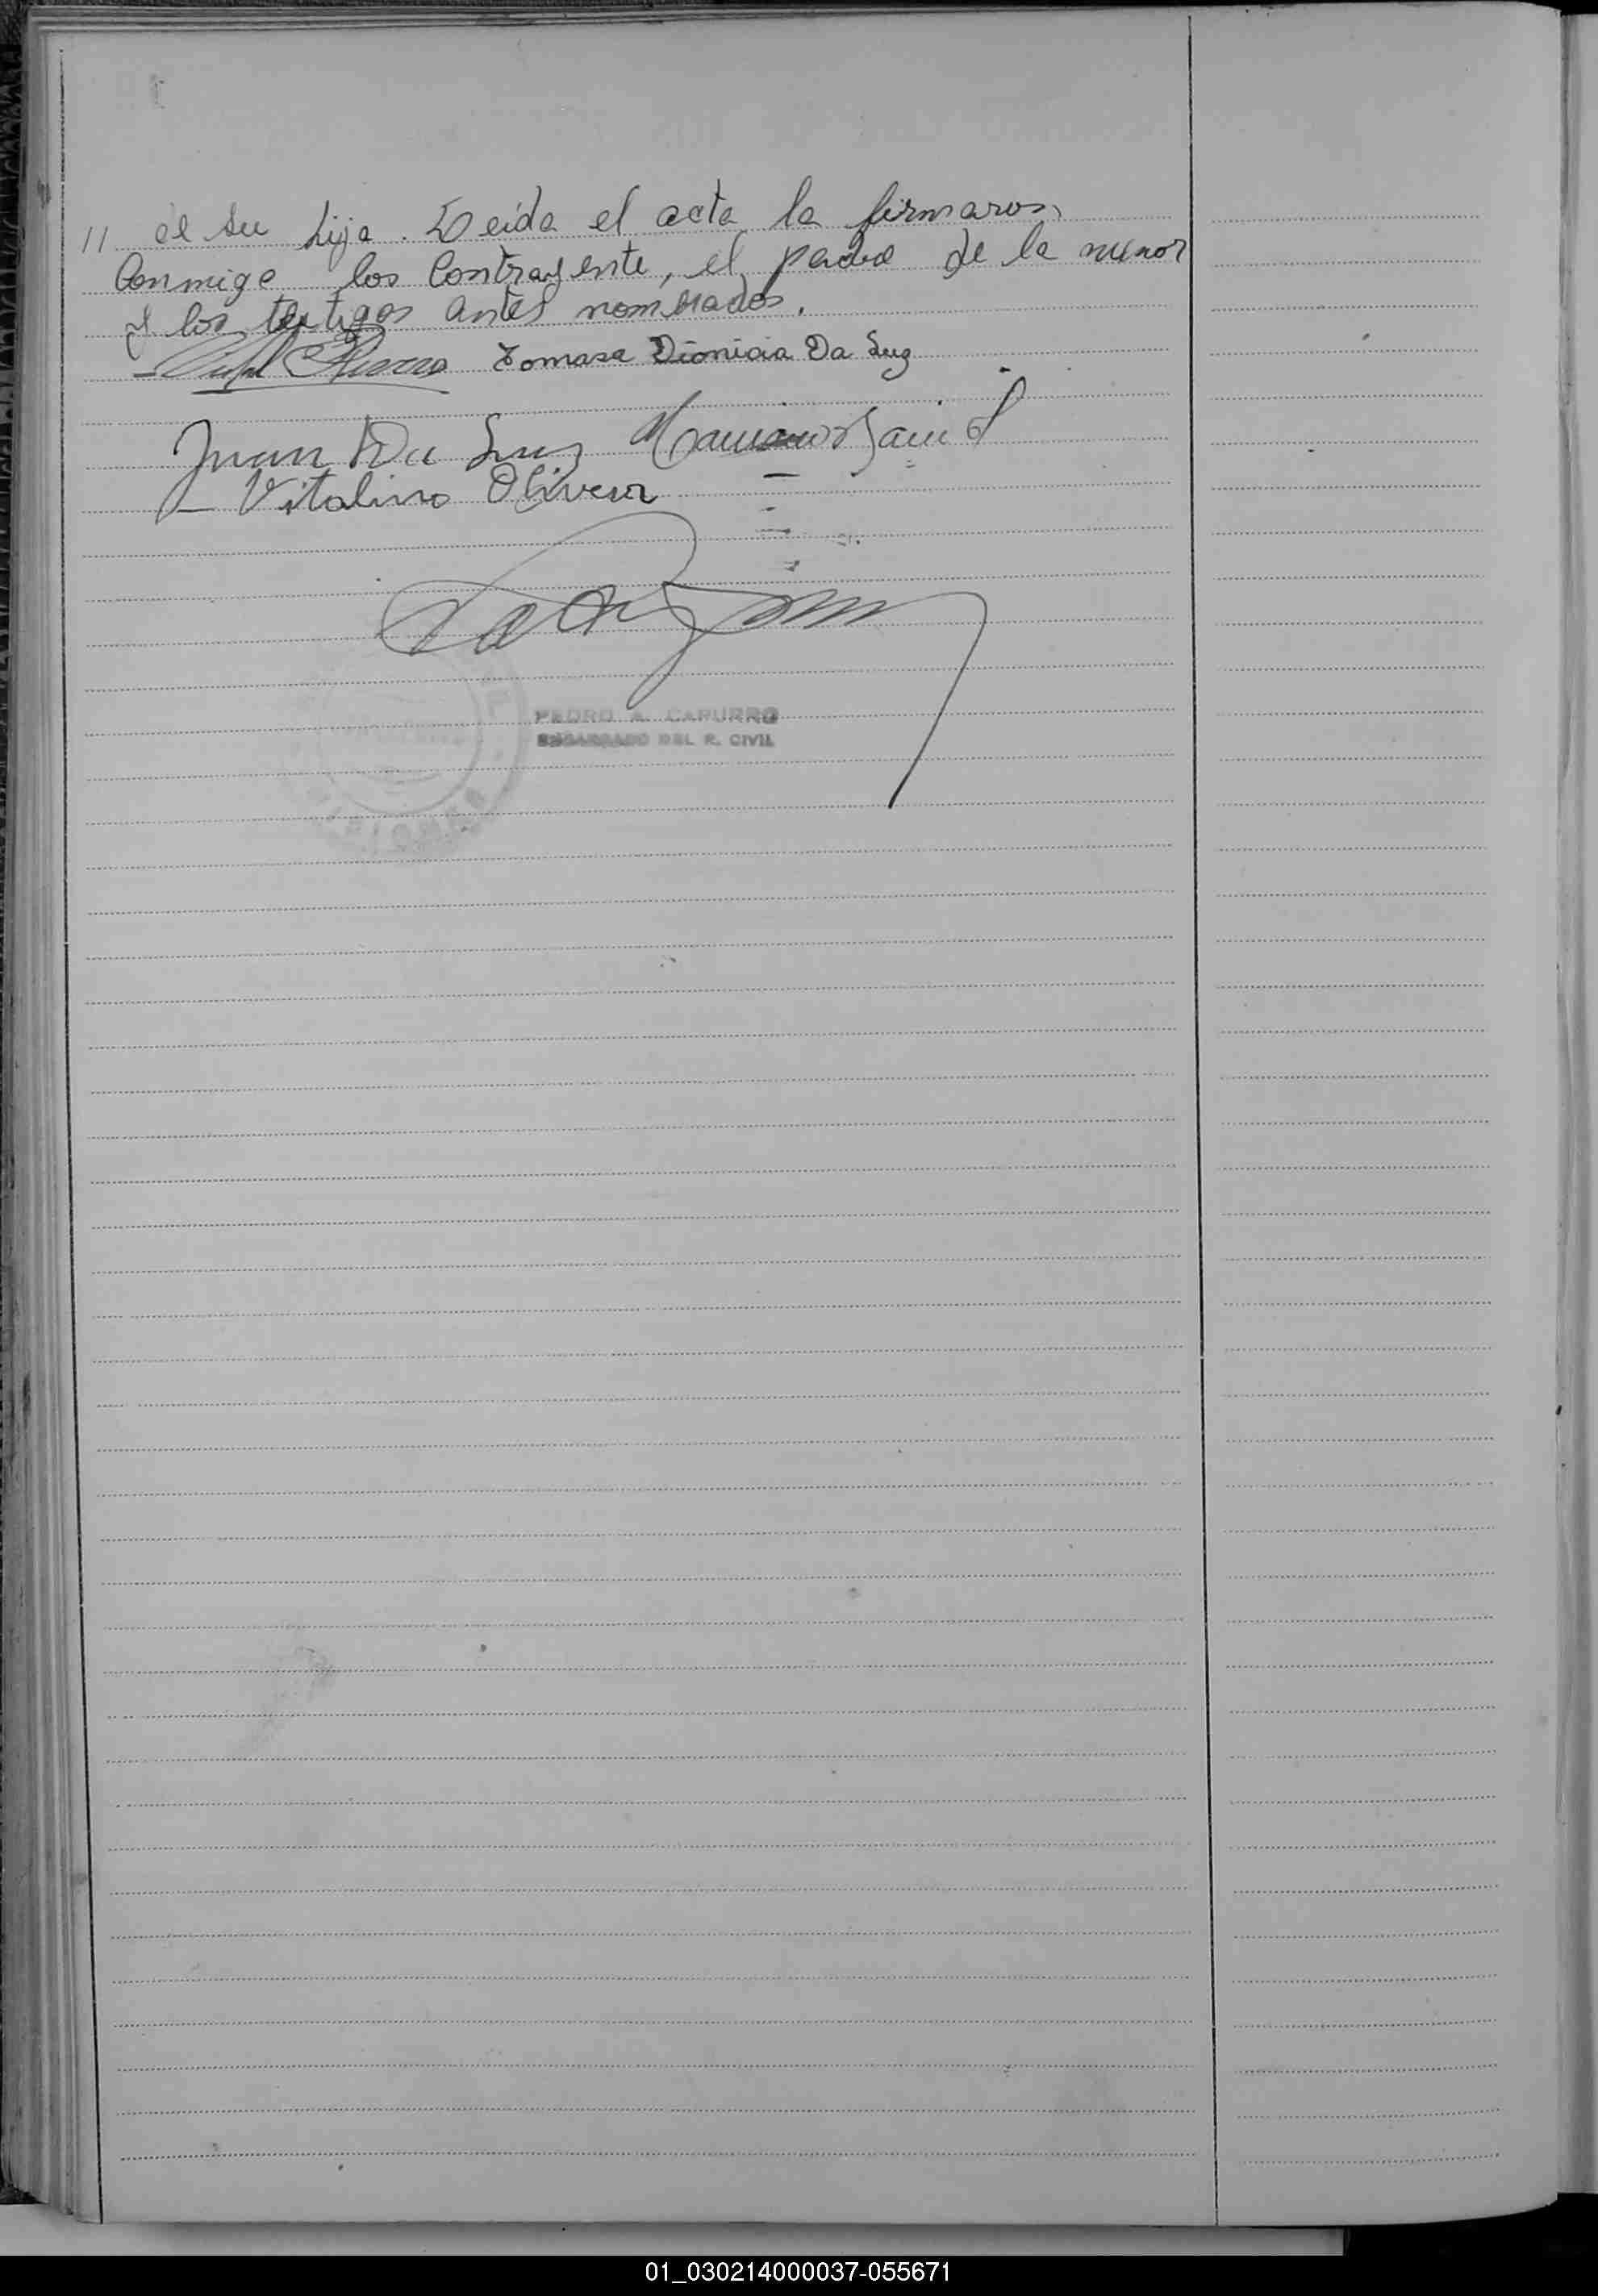 // de su hija. Leída el acta la firmaron
conmigo los contrayente, el padre de la menor
y los testigos antes nombrados.
Tomasa Dionicia Da Luz
Juan Da Luz Mariano
Vitalino Olivera
PEDRO A. CAPURRO
ENCARGADO DEL R. CIVIL
01_030214000037-055671